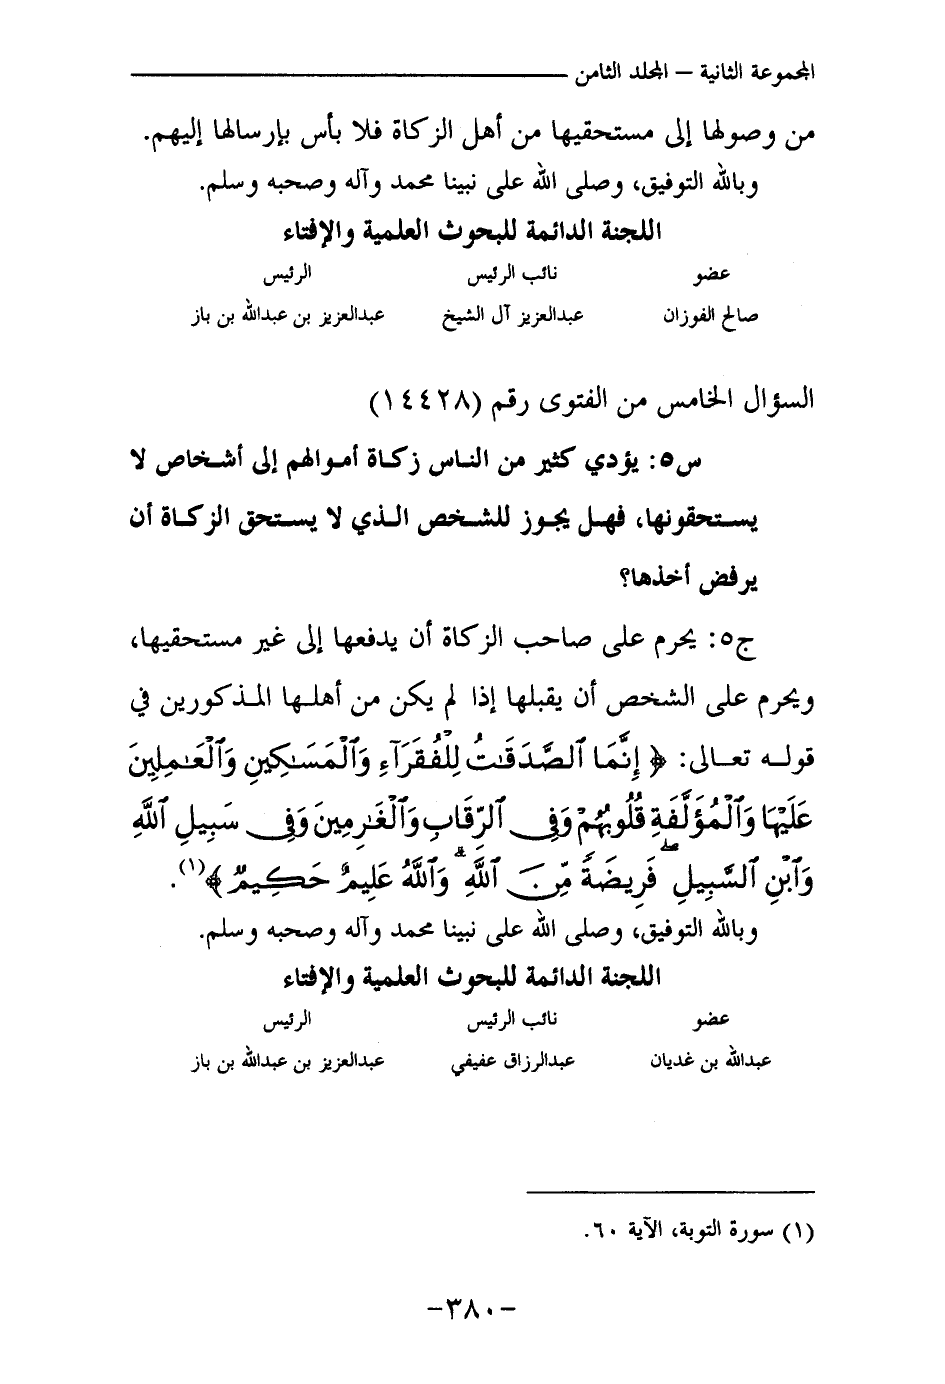 المجموعة الثانية – المجلد الثامن
من وصولها إلى مستحقيها من أهل الزكاة فلا بأس بإرسالها إليهم.
وبالله التوفيق، وصلى الله على نبينا محمد وآله وصحبه وسلم.
اللجنة الدائمة للبحوث العلمية والإفتاء
عضو نائب الرئيس الرئيس
صالح الفوزان عبدالعزيز آل الشيخ عبدالعزيز بن عبدالله بن باز
السؤال الخامس من الفتوى رقم (١٤٤٢٨)
س٥: يؤدي كثير من الناس زكاة أموالهم إلى أشخاص لا
يستحقونها، فهل يجوز للشخص الذي لا يستحق الزكاة أن
يرفض أخذها؟
ج٥: يحرم على صاحب الزكاة أن يدفعها إلى غير مستحقيها،
ويحرم على الشخص أن يقبلها إذا لم يكن من أهلها المذكورين في
قوله تعالى: ﴿ إِنَّمَا ٱلصَّدَقَٰتُ لِلْفُقَرَآءِ وَٱلْمَسَٰكِينِ وَٱلْعَٰمِلِينَ
عَلَيْهَا وَٱلْمُؤَلَّفَةِ قُلُوبُهُمْ وَفِى ٱلرِّقَابِ وَٱلْغَٰرِمِينَ وَفِى سَبِيلِ ٱللَّهِ
وَٱبْنِ ٱلسَّبِيلِ ۖ فَرِيضَةً مِّنَ ٱللَّهِ ۗ وَٱللَّهُ عَلِيمٌ حَكِيمٌ ﴾(١).
وبالله التوفيق، وصلى الله على نبينا محمد وآله وصحبه وسلم.
اللجنة الدائمة للبحوث العلمية والإفتاء
عضو نائب الرئيس الرئيس
عبدالله بن غديان عبدالرزاق عفيفي عبدالعزيز بن عبدالله بن باز
(١) سورة التوبة، الآية ٦٠.
-٣٨٠-